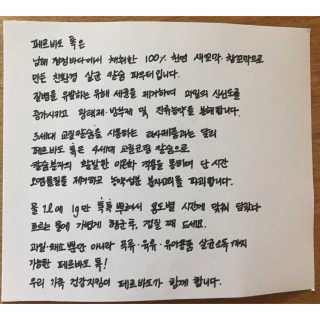 페르바도 톡은
남해 청정바다에서 채취한 100% 천연 새꼬막, 참꼬막으로
만든 친환경 살균 칼슘 파우더입니다.
질병을 유발하는 유해 세균을 제거하며 과일의 신선도를
증가시키고 왁태제·방부제 및 잔류농약을 분해합니다.
3세대 교질칼슘을 사용하는 타사제품과는 달리
페르바도 톡은 4세대 교질코랄 칼슘으로
칼슘분자의 활발한 이온화 작용을 통하여 단 시간
오염물질을 제거하고 농약성분 분자고리를 파괴합니다.
물 2L에 1g만 톡톡 뿌려서 용도별 시간에 맞춰 담궜다
흐르는 물에 가볍게 헹군후, 껍질 째 드세요.
과일·채소 뿐만 아니라 곡류·육류·유아용품 살균소독까지
가능한 페르바도 톡!
우리 가족 건강지킴이 페르바도가 함께 합니다.